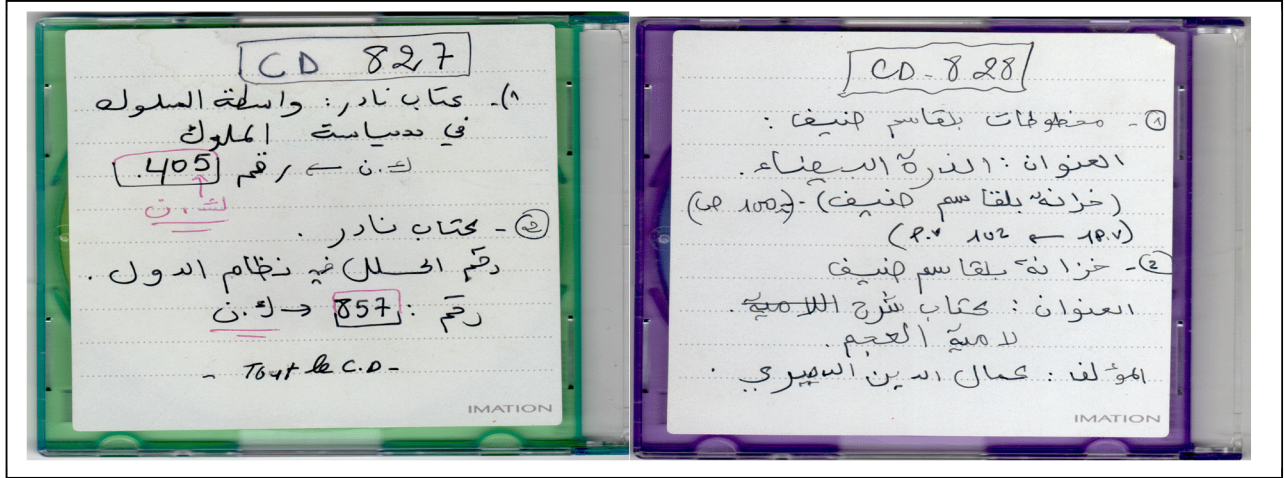 CD 827
1)- كتاب نادر: واسطة السلوك
في سياسة الملوك
ك.ن ← رقم 405.
ك.ن
2 - كتاب نادر.
رقم الحلل في نظام الدول.
رقم: 857 → ك.ن
- Tout le C.D -
IMATION
CD-828
1- مخطوطات بلقاسم ضيف:
العنوان: الذرة البيضاء.
(خزانة بلقاسم ضيف)- (100 ص)
(1P.V → 102 P.V)
2- خزانة بلقاسم ضيف
العنوان: كتاب شرح اللامية.
لامية العجم.
المؤلف: كمال الدين الدميري.
IMATION